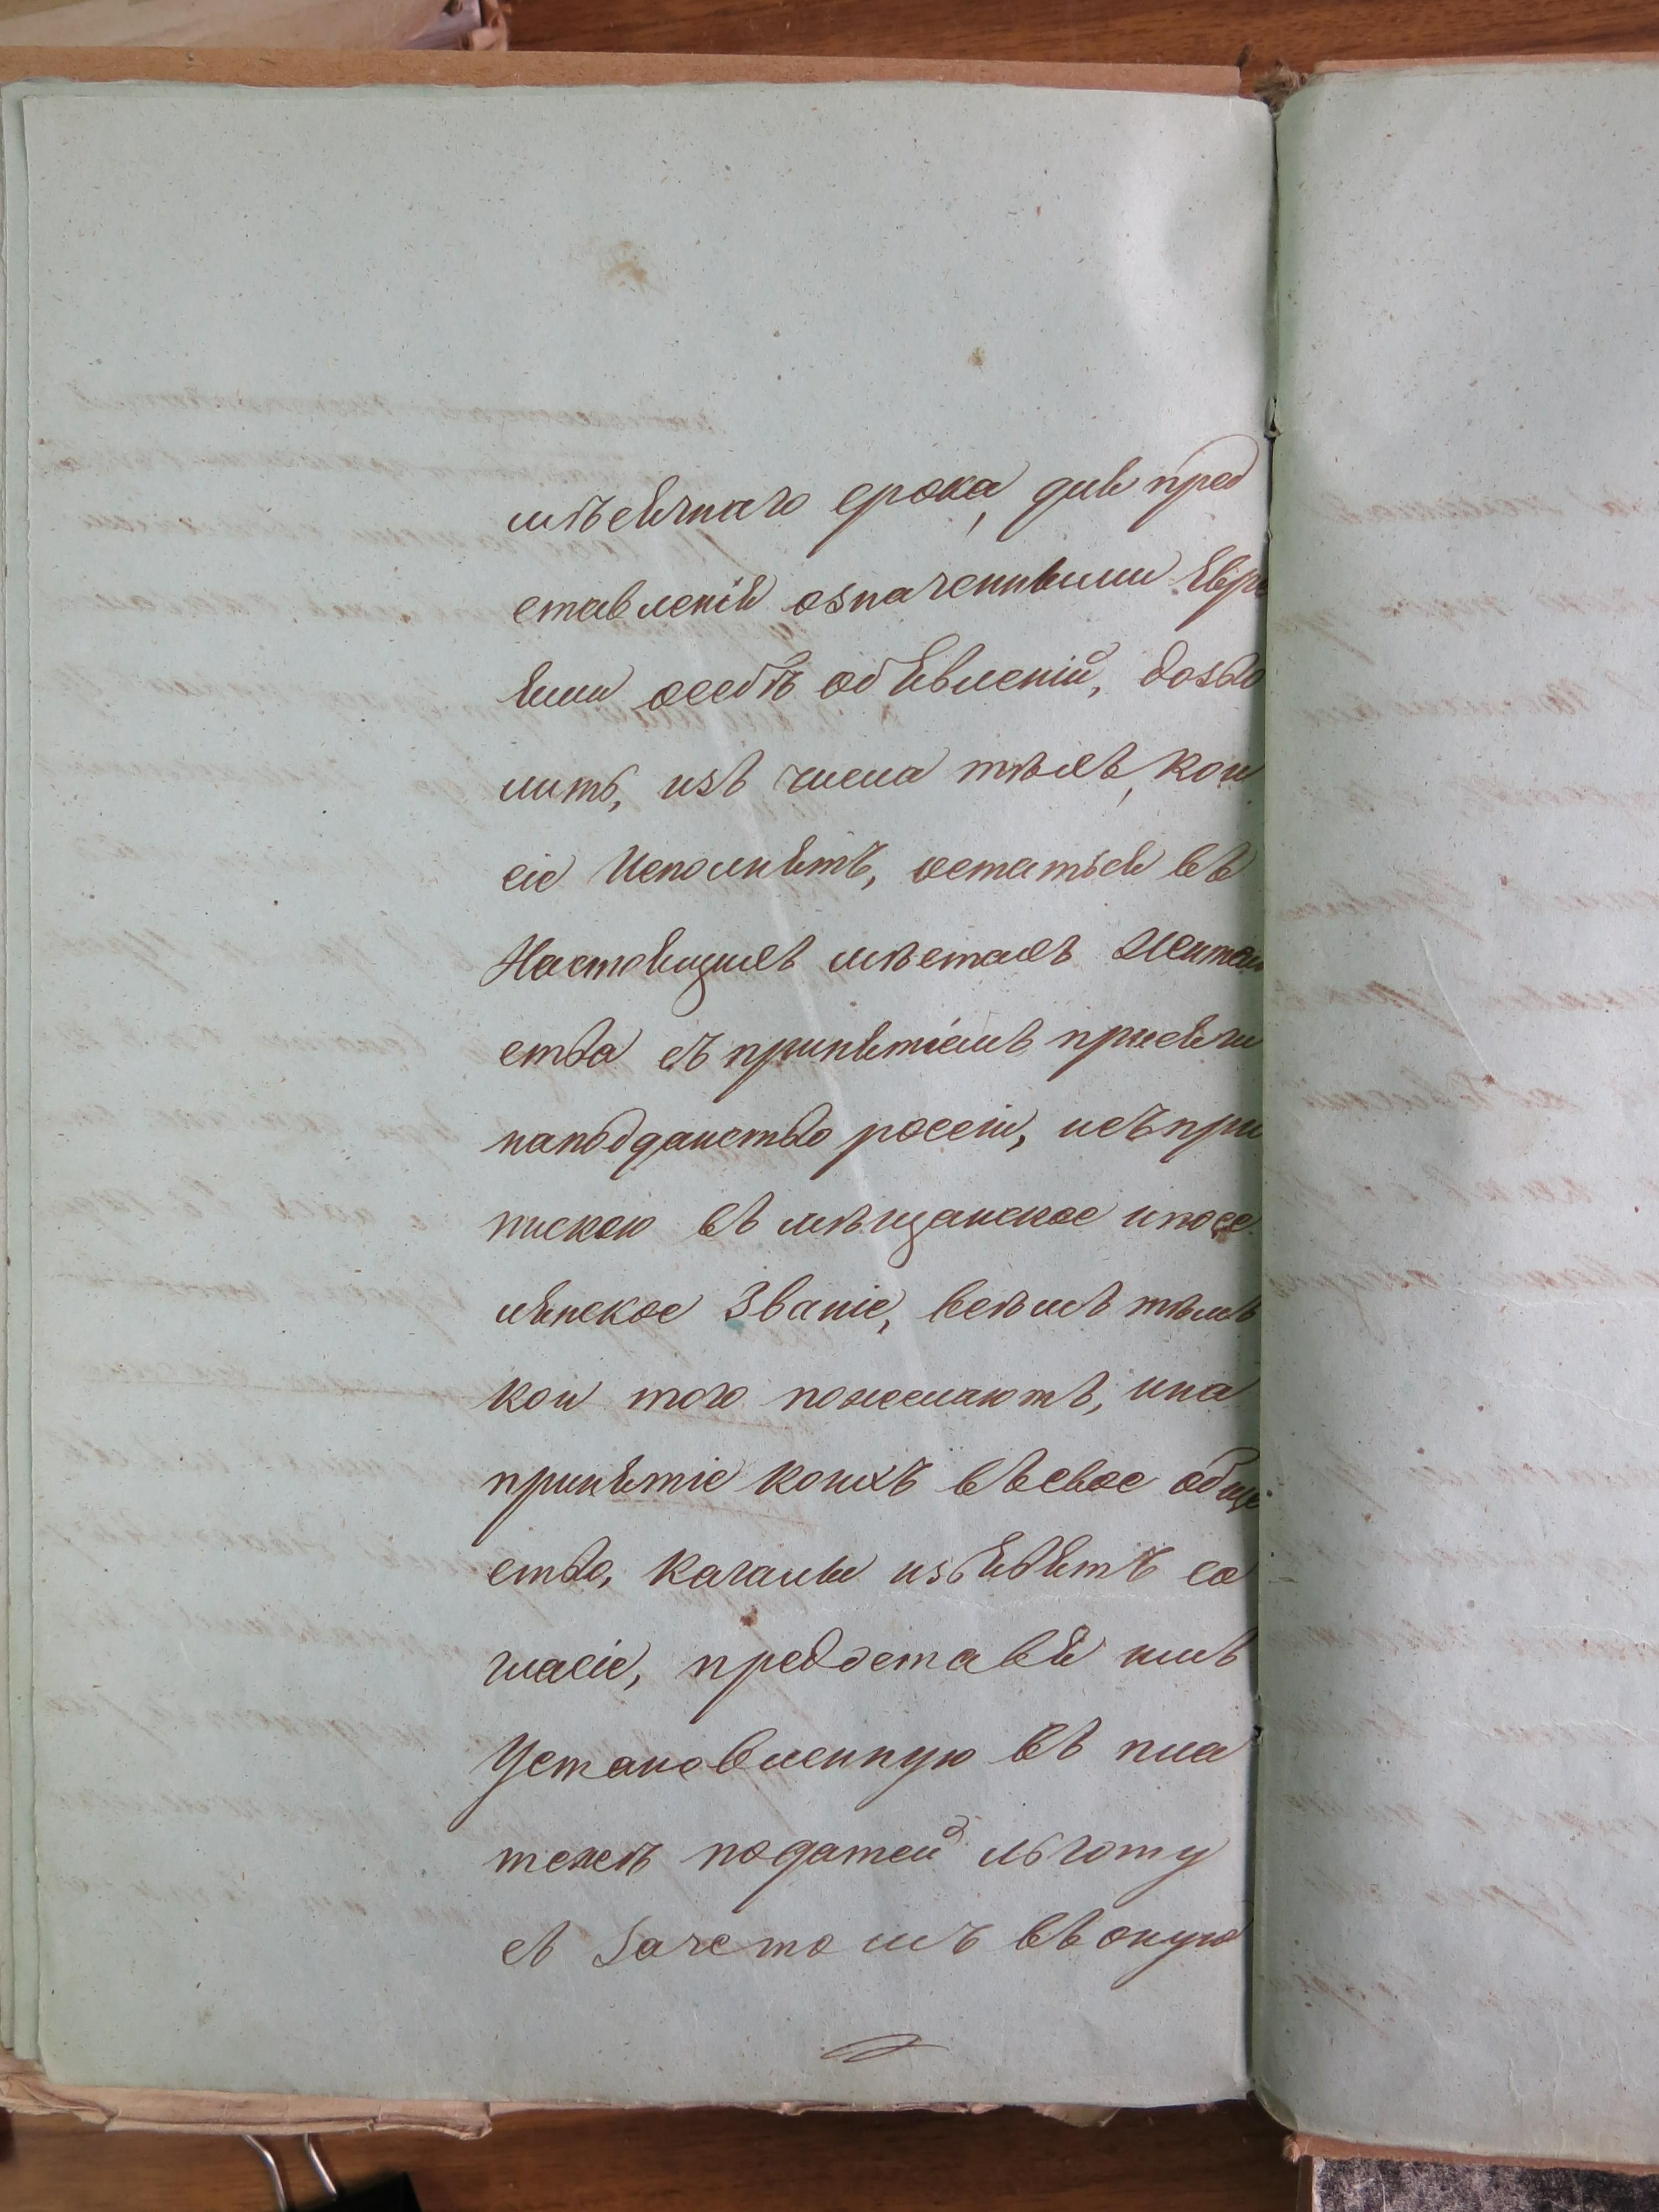 мѣсячнаго срока, для пред
ставленія означенными Евре
ями особъ объявленій, дозво
лить, изъ числа тѣхъ, кои
сіе исполнятъ, остаться въ
Настоящихъ мѣстахъ Жител
ства съ принятіемъ присяги
наподданство россіи, исъпри
пискою въ мѣщанское ипосе
лянское Званіе, всѣмъ тѣмъ
кои того пожелаютъ, ина
принятіе коихъ въсвое обще
ство, кагалы изъявятъ со
гласіе, предоставя имъ
Установленную въ пла
тежѣ податей льготу
съ Зачетомъ въ оную